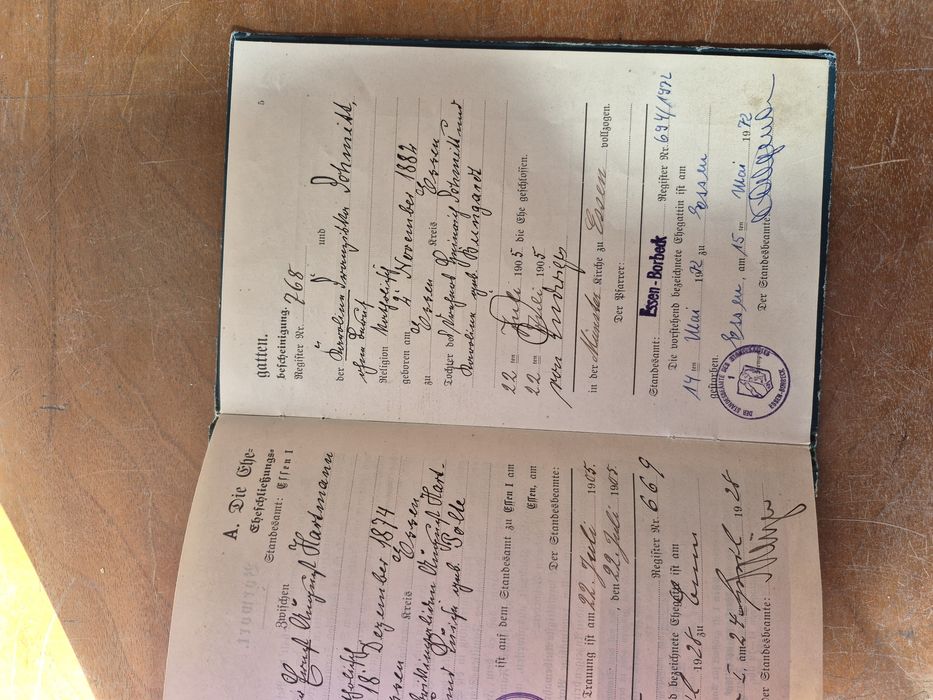 A. Die Ehe-
Eheschließungs-
Standesamt: Essen I
Zwischen
Ernst August Hartmann
18 Dezember 1874
Essen Kreis Essen
August Hart-
und geb. Nolle
ist auf dem Standesamt zu Essen I am
Essen, am
Der Standesbeamte:
Trauung ist am 22. Juli 1905.
, den 22. Juli 1905.
Register Nr. 669
bezeichnete Ehe ist am
1928 zu Essen
I, am 24 April 1928
der Standesbeamte:
gatten.
5
bescheinigung.
Register Nr. 768
und
der Karolina Franziska Schmitt,
ohne Beruf
Religion katholisch
geboren am 2. ten November 1882
zu Essen Kreis Essen
Tochter des Heinrich Schmitt und
Karolina geb. Bungardt
22 ten Juli 1905 die Ehe geschlossen.
22 ten Juli 1905
in der Münster Kirche zu Essen vollzogen.
Der Pfarrer:
Standesamt: Essen-Borbeck Register Nr. 694/1972
Die vorstehend bezeichnete Ehegattin ist am
14 ten Mai 1972 zu Essen
gestorben. Essen, am 15 ten Mai 1972
Der Standesbeamte
DER STANDESBEAMTE DES STANDESAMTES
ESSEN-BORBECK